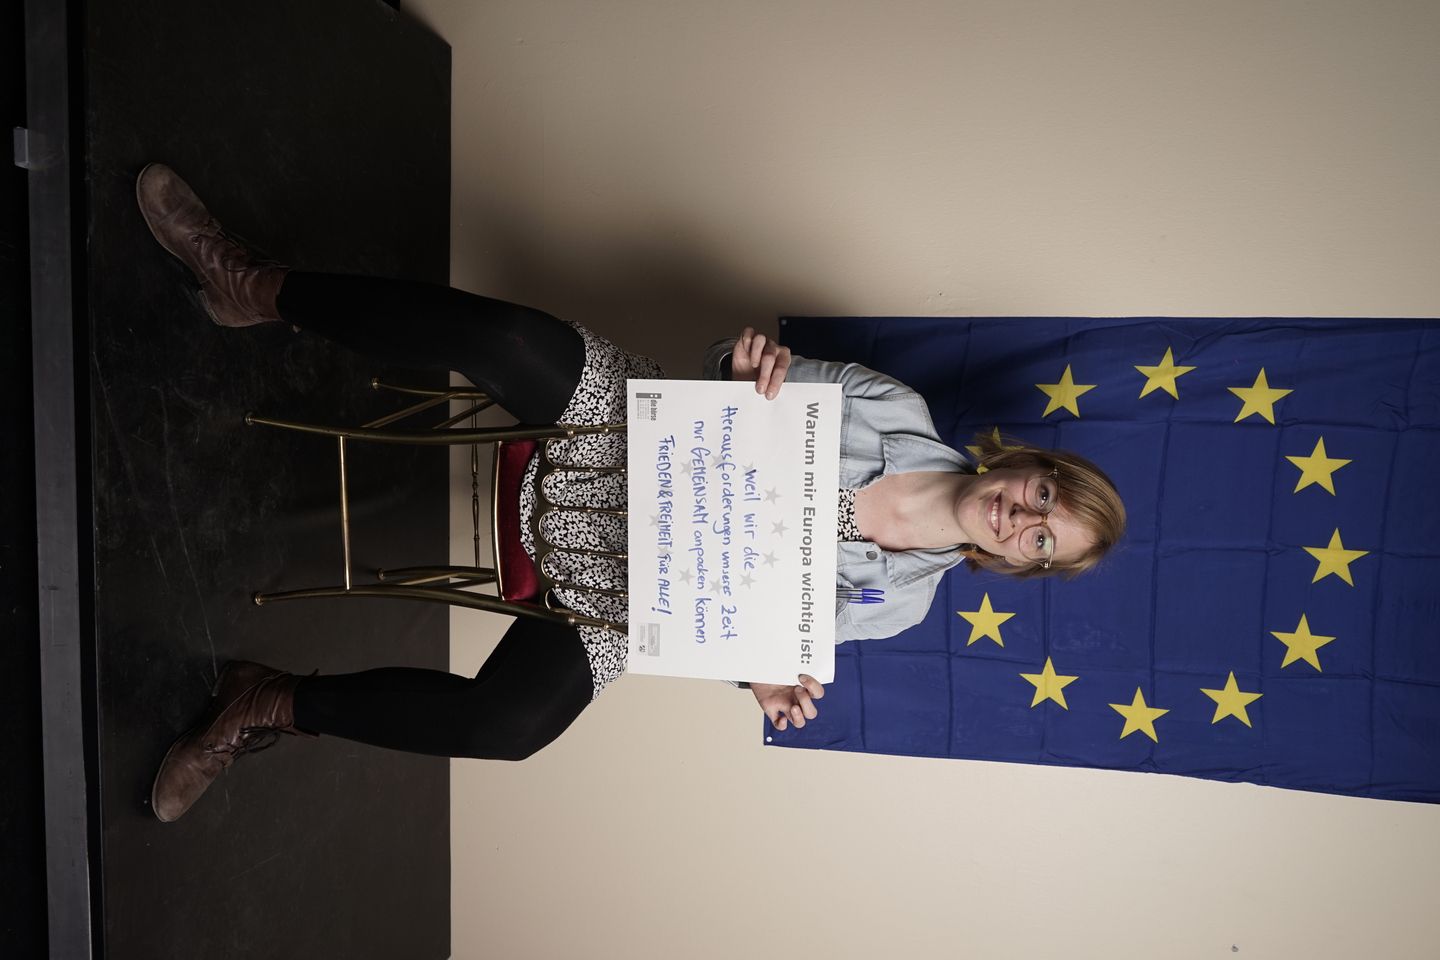 Warum mir Europa wichtig ist:
Weil wir die
Herausforderungen unserer Zeit
nur GEMEINSAM anpacken können
FRIEDEN & FREIHEIT FÜR ALLE!
die börse